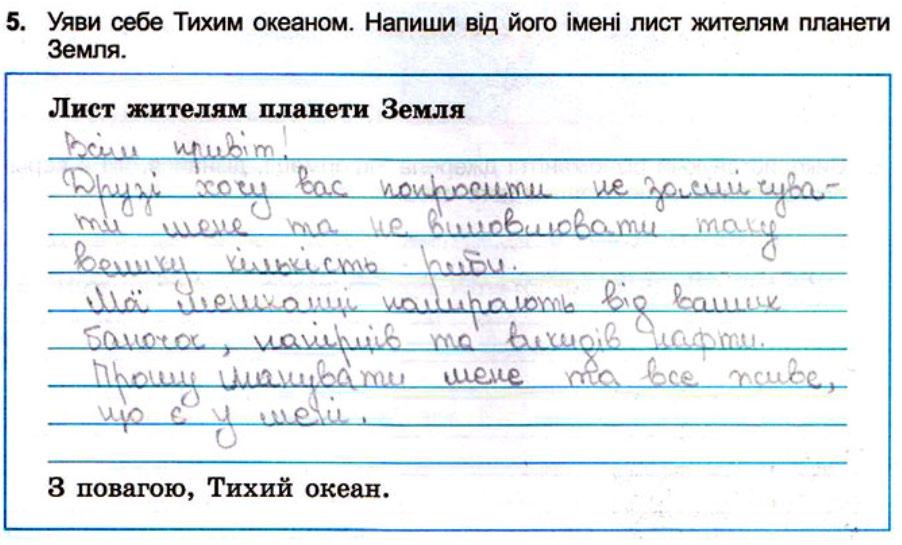 5. Уяви себе Тихим океаном. Напиши від його імені лист жителям планети
Земля.
Лист жителям планети Земля
Всім привіт!
Друзі хочу вас попросити не засмічува-
ти мене та не виловлювати таку
велику кількість риби.
Мої мешканці помирають від ваших
баночок, папірців та викидів нафти.
Прошу шанувати мене та все живе,
що є у мені.
З повагою, Тихий океан.